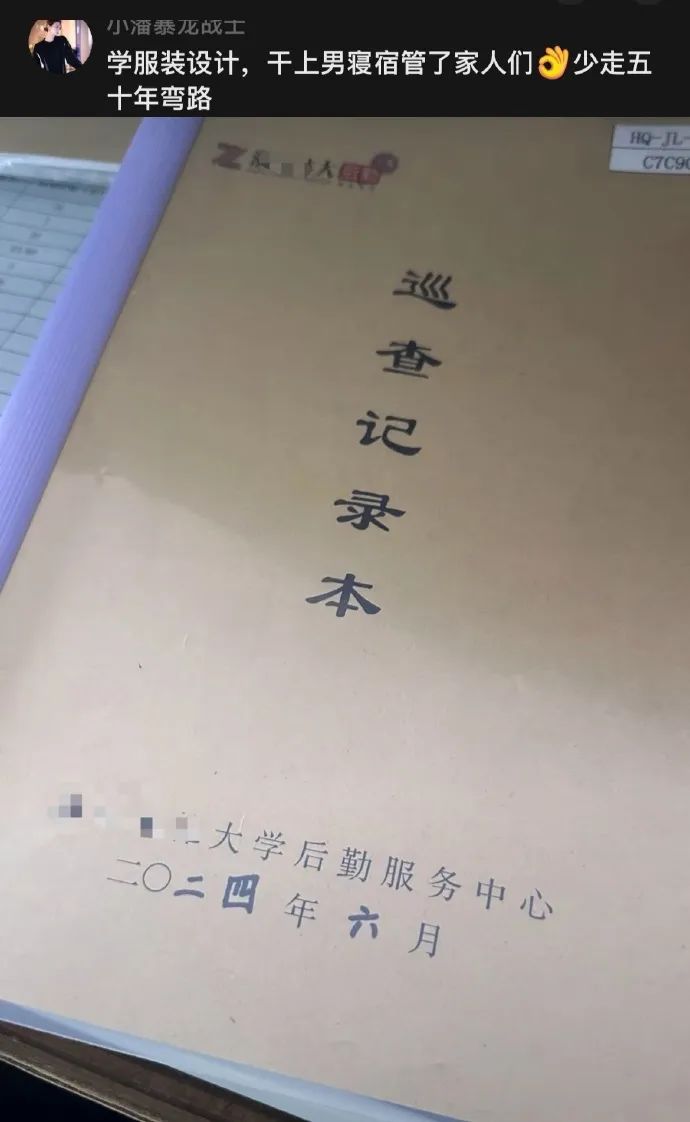 小潘暴龙战士
学服装设计，干上男寝宿管了家人们👌少走五
十年弯路
HQ-JL-
C7C90
巡查记录本
大学后勤服务中心
二〇二四年六月